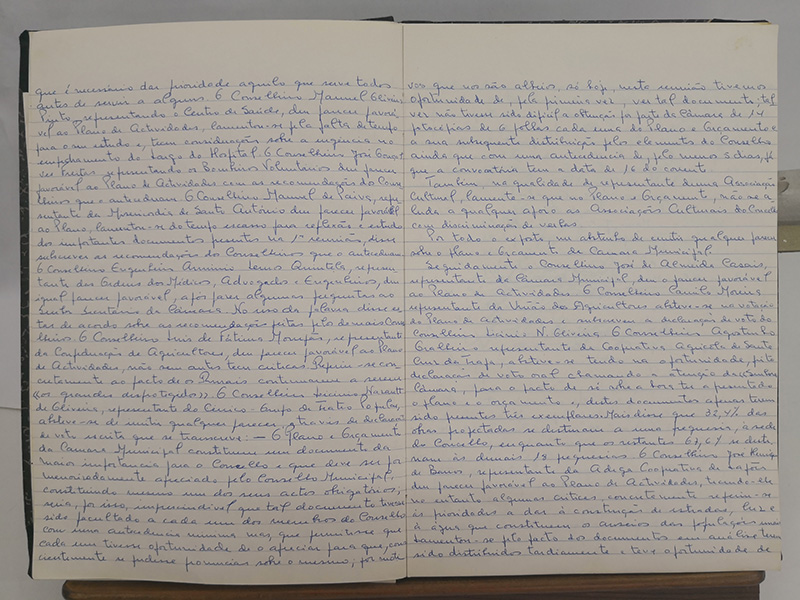 que é necessário dar prioridade aquilo que serve todos
antes de servir a alguns. O Conselheiro Manuel
representando o Centro de Saúde, deu parecer favorá-
vel ao Plano de Actividades, lamentou-se pela falta de tempo
para o seu estudo e, teceu considerações sobre a urgência no
do Largo do Hospital. O Conselheiro José
representando os Bombeiros Voluntários deu parecer
favorável ao Plano de Actividades com as recomendações do Conse-
lheiro que o antecedeu. O Conselheiro Manuel de Paiva, repre-
sentante da Misericordia de Santo António deu parecer favorável
ao Plano, lamentou-se do tempo escasso para reflexão e estudo
dos importantes documentos presentes na 1ª reunião, disse
subscrever as recomendações do Conselheiros que o antecederam.
O Conselheiro Engenheiro Arminio Lemos Quintela, represen-
tante das Ordens dos Médicos, Advogados e Engenheiros, deu
igual parecer favorável, após fazer algumas perguntas ao
da Câmara. No uso da palavra disse es-
tar de acordo sobre as recomendações feitas pelo demais Conse-
lheiros. O Conselheiro Luis de Fátima, representante
da Confederação de Agricultores, deu parecer favorável ao Plano
de Actividades, não sem antes tecer criticas. Referiu-se con-
cretamente ao facto de o continuarem a serem
«os grandes desprotegidos». O Conselheiro
de Oliveira, representante do Cénico - Grupo de Teatro Popular,
absteve-se de emitir qualquer parecer, através de declaração
de voto escrita que se transcreve: — O Plano e Orçamento
da Câmara Municipal constituem um documento da
maior importancia para o Concelho e que deve ser por-
menorizadamente apreciado pelo Conselho Municipal,
constituindo mesmo um dos seus actos obrigatórios,
seria, por isso, imprescindivel que tal documento tivesse
sido facultado a cada um dos membros do Conselho
com uma antecedencia minima mas, que permitisse que
cada um tivesse oportunidade de o apreciar para que, cons-
cientemente se pudesse pronunciar sobre o mesmo; por moti-
vos que nos são alheios, só hoje, nesta reunião tivemos
oportunidade de, pela primeira vez, ver tal documento; tal-
vez não tivesse sido dificil a obtenção por parte da Câmara de 14
fotocópias de 6 folhas cada uma do Plano e Orçamento e
a sua subsequente distribuição pelos elementos do Conselho
ainda que com uma antecedencia de, pelo menos 5 dias, já
que a convocatória tem a data de 16 do corrente.
Também, na qualidade de representante duma Associação
Cultural, lamenta-se que no Plano e Orçamento, não se a-
luda a qualquer apoio as Associações Culturais do Concelho
com discriminação de verbas.
Por todo o exposto me abstenho de emitir qualquer parecer
sobre o plano e Orçamento da Câmara Municipal.
Seguidamente o Conselheiro José de Almeida Casais,
representante da Câmara Municipal, deu o parecer favorável
ao Plano de Actividades. O Conselheiro Camilo
representante da União dos Agricultores absteve-se na votação
do Plano de Actividades e subscreveu a declaração de voto do
Conselheiro N. Oliveira. O Conselheiro Agostinho
representante da Cooperativa Agricola de Santa
Cruz da Trapa, absteve-se tendo na oportunidade, feito
declaração de voto oral chamando a atenção da
Câmara, para o facto de só sobre a hora ter apresentado
o plano e o orçamento e, destes documentos apenas terem
sido presentes três exemplares. Mais disse que 32,4% das
obras projectadas se destinam a uma freguesia, à sede
do Concelho, enquanto que os restantes 67,6% se desti-
nam às demais 18 freguesias. O Conselheiro José
de Barros, representante da Adega Cooperativa de Lafões
deu parecer favorável ao Plano de Actividades, tecendo-lhe
no entanto algumas criticas, concretamente referiu-se
às prioridades a dar à construção de estradas, luz e
à água que constituem o anseio das populações
Lamentou-se pelo facto dos documentos em análise terem
sido distribuidos tardiamente e teve oportunidade de